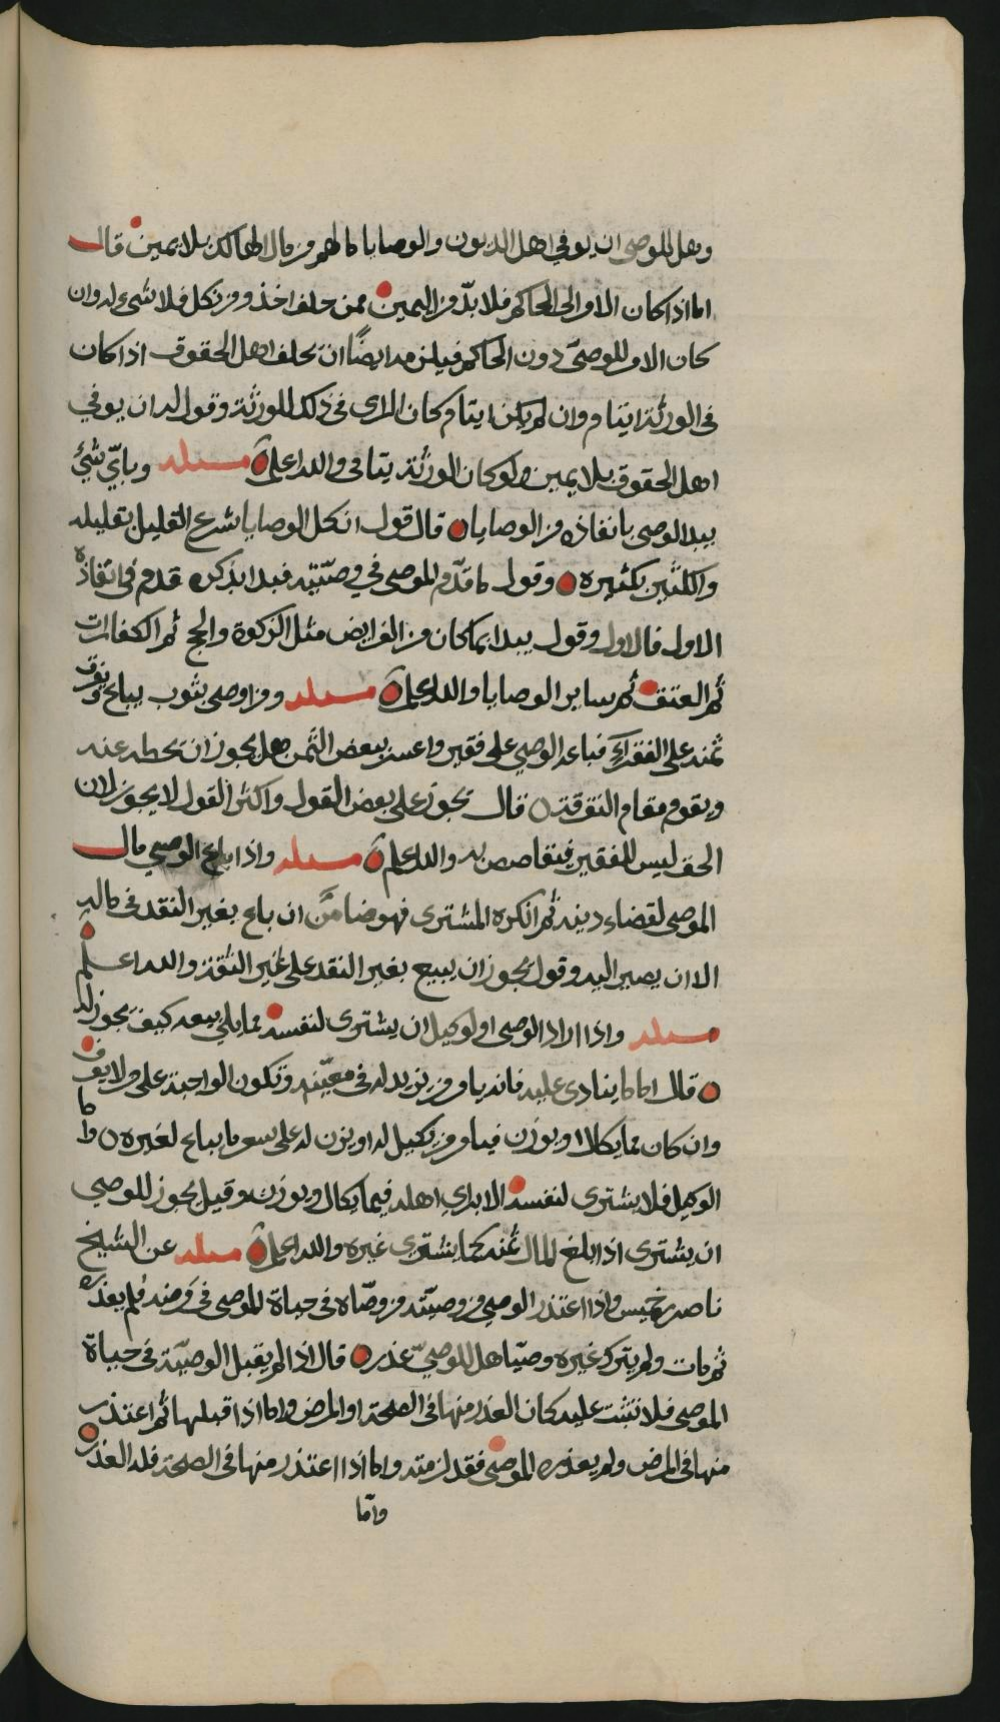 وهل للوصي ان يوفي اهل الديون والوصايا مالهم من مال الهالك بلا يمين قال
اما اذا كان الامر الى الحاكم فلا بدّ من اليمين فمن حلف اخذ ومن نكل فلا شيء له وان
كان الامر للوصيّ دون الحاكم فيلزمه ايضًا ان يحلف اهل الحقوق اذا كان
في الورثة ايتام وان لم يكن ايتام كان الراي في ذلك للورثة وقول له ان يوفي
اهل الحقوق بلا يمين ولو كان الورثة يتامى والله اعلم مسئلة وبايّ شيء
يبدا الوصي بانفاذه من الوصايا قال قول ان كل الوصايا شرع القليل بقليله
والكثير بكثيره وقول ما قدّم الموصي في وصيّته فبدا بذكره قدم في انفاذه
الاول فالاول وقول يبدا بما كان من الفرايض مثل الزكوة والحج ثم الكفارات
ثم العتق ثم ساير الوصايا والله اعلم مسئلة ومن اوصى بثوب يباع ويفرق
ثمنه على الفقراء فباعه الوصي على فقير واعسر ببعض الثمن هل يجوز ان يحطه عنه
ويقوم مقام التفرقة قال يجوز على بعض القول واكثر القول لا يجوز لان
الحق ليس للفقير فيقاصص به والله اعلم مسئلة واذا باع الوصي مال
الموصي لقضاء دينه ثم انكره المشترى فهو ضامن ان باع بغير النقد في ماله
الا ان يصير اليه وقول يجوز ان يبيع بغير النقد على غير الثقة والله اعلم
مسئلة واذا اراد الوصي او لوكيل ان يشترى لنفسه مما يلي بيعه كيف يجوز له
قال اما ما ينادى عليه فانه يامر من يزيد له في معيّنه وتكون الواجبة على من لا يعرف
وان كان مما يكال او يوزن فيامر من يكيل له او يزن له على سعر ما يباع لغيره واما
الوكيل فلا يشترى لنفسه الا براي اهله فيما يكال ويوزن وقيل يجوز للوصي
ان يشترى اذا بلغ المال ثمنه كما يشترى غيره والله اعلم مسئلة عن الشيخ
ناصر بن خميس واذا اعتذر الوصي من وصيّته من وصّاه في حياة الموصي في مرضه فلم يعذره
ثم مات ولم يترك غيره وصيّا هل للوصيّ عذر قال اذا لم يقبل الوصيّة في حياة
الموصي فلا تثبت عليه كان العذر منها في الصحة او المرض واما اذا قبلها ثم اعتذر
منها في المرض ولم يعذره الموصي فقد لزمته واما اذا اعتذر منها في الصحة فله العذر
وامّا